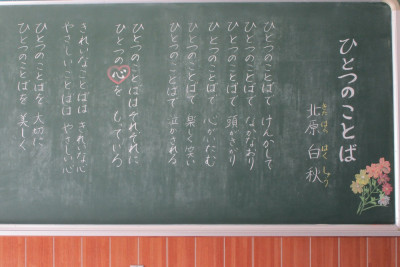 ひとつのことば
北原 白秋
きたはら はくしゅう
ひとつのことばで けんかして
ひとつのことばで なかなおり
ひとつのことばで 頭がさがり
ひとつのことばで 心がいたむ
ひとつのことばで 楽しく笑い
ひとつのことばで 泣かされる
ひとつのことばはそれぞれに
ひとつの心を もっている
きれいなことばは きれいな心
やさしいことばは やさしい心
ひとつのことばを 大切に
ひとつのことばを 美しく